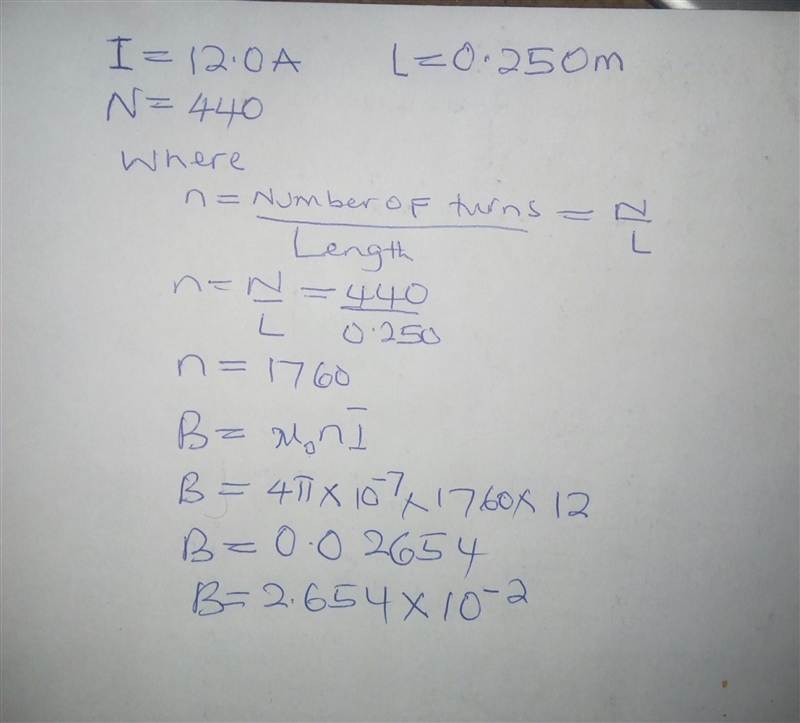 I = 12.0A L = 0.250m
N = 440
Where
n = Number of turns / Length = N / L
n = N / L = 440 / 0.250
n = 1760
B = μ₀nI
B = 4π × 10⁻⁷ × 1760 × 12
B = 0.02654
B = 2.654 × 10⁻²